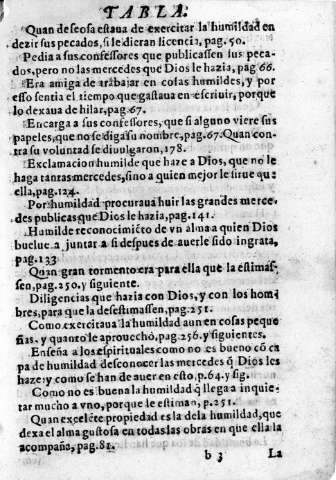 TABLA.
Quan deseosa estaua de exercitar la humildad en
dezir sus pecados, si le dieran licencia, pag. 50.
Pedia a sus confessores que publicassen sus peca-
dos, pero no las mercedes que Dios le hazia, pag 66.
Era amiga de trabajar en cosas humildes, y por
esso sentia el tiempo que gastaua en escriuir, porque
lo dexaua de hilar, pag 67.
Encarga a sus confessores, que si alguno viere sus
papeles, que no se diga su nombre, pag. 67. Quan con-
tra su voluntad se diuulgaron, 178.
Exclamacion humilde que haze a Dios, que no le
haga tantas mercedes, sino a quien mejor le sirue que
ella, pag. 124.
Por humildad procuraua huir las grandes merce-
des publicas que Dios le hazia, pag. 141.
Humilde reconocimiẽto de vn alma a quien Dios
buelue a juntar a si despues de auerle sido ingrata,
pag. 133
Quan gran tormento era para ella que la estimas-
sen, pag. 250, y siguiente.
Diligencias que hazia con Dios, y con los hom-
bres, para que la desestimassen, pag. 251.
Como exercitaua la humildad aun en cosas peque
ñas, y quanto le aprouechó, pag. 256. y siguientes.
Enseña a los espirituales como no es bueno cõ ca
pa de humildad desconocer las mercedes q̃ Dios les
haze: y como se han de auer en esto, p. 64. y sig.
Como no es buena la humildad q̃ llega a inquie-
tar mucho a vno, porque le estiman, p. 251.
Quan excelẽte propiedad es la de la humildad, que
dexa el alma gustosa en todas las obras en que ella la
acompaña, pag. 81.
b 3 La